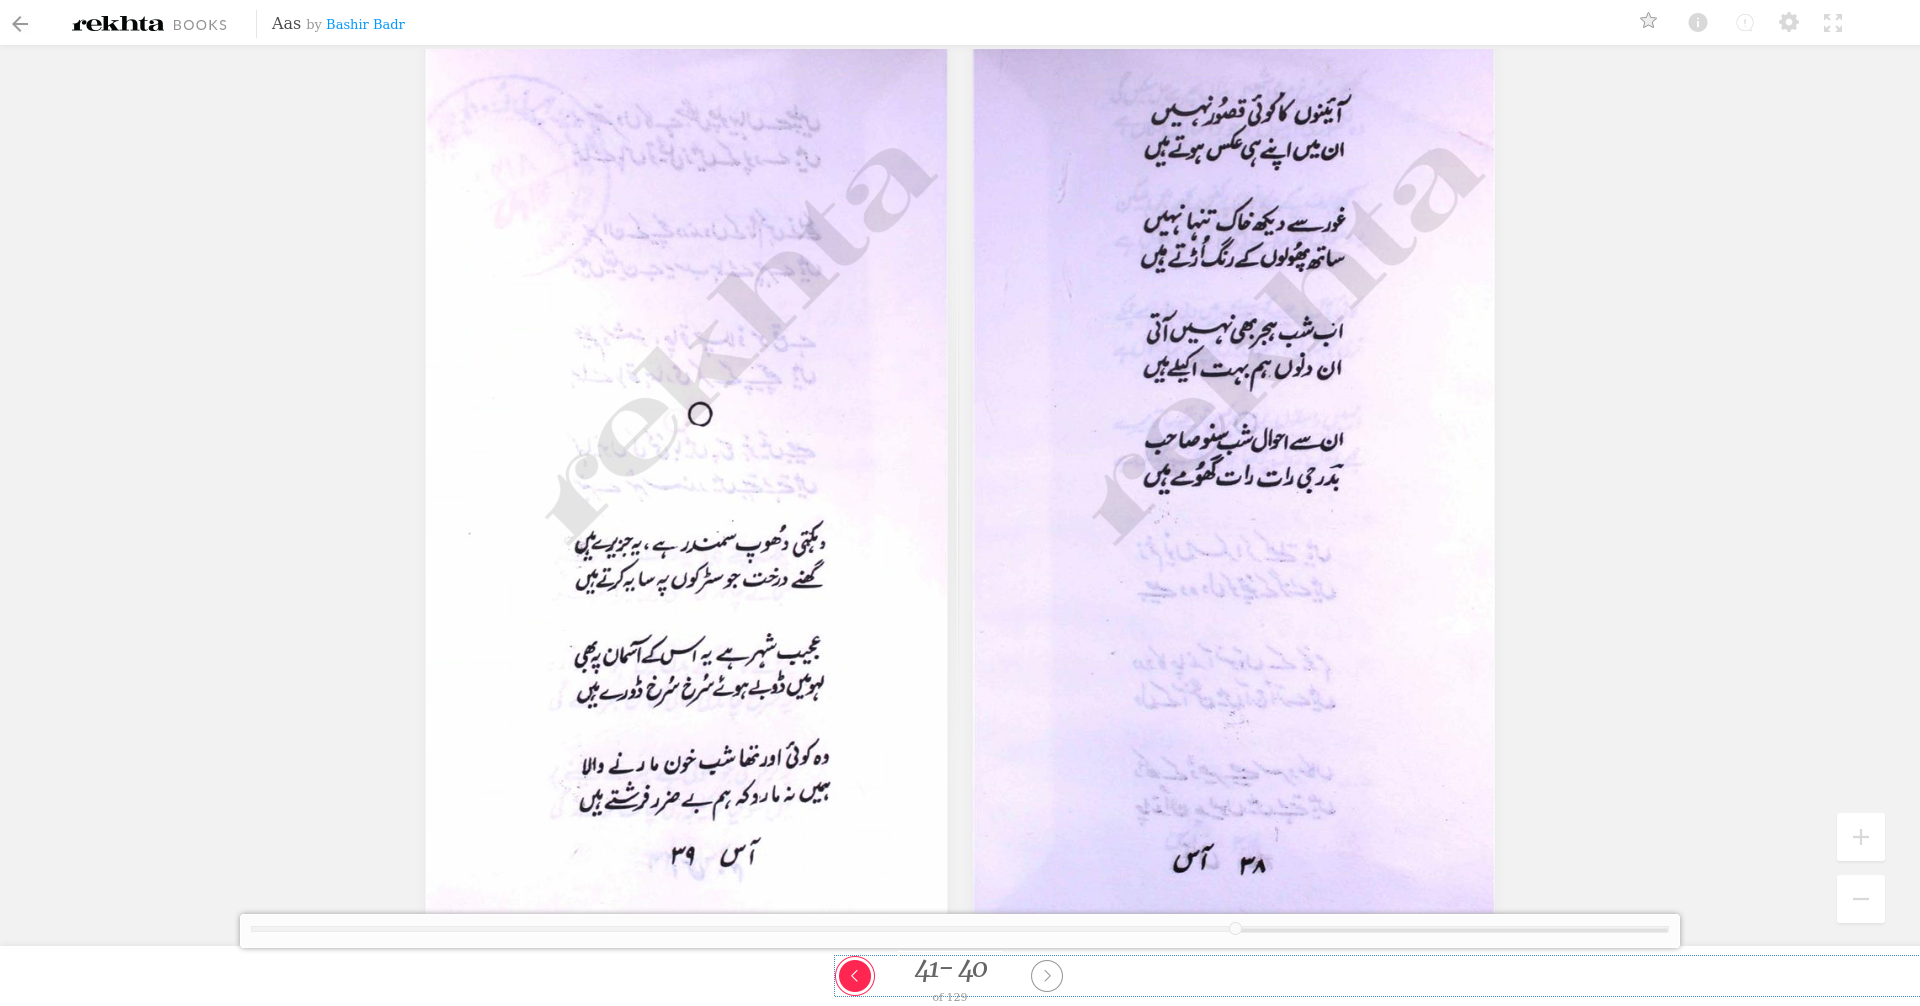 rekhta BOOKS Aas by Bashir Badr
آئینوں کا کوئی قصُور نہیں
ان میں اپنے ہی عکس ہوتے ہیں
غور سے دیکھ خاک تنہا نہیں
ساتھ پھُولوں کے رنگ اُڑتے ہیں
اب شب ہجر بھی نہیں آتی
ان دنوں ہم بہت اکیلے ہیں
ان سے احوال شب سنو صاحب
بدر جی رات رات گھُومے ہیں
۳۸ آس
rekhta
دہکتی دُھوپ سمندر ہے، یہ جزیرے ہیں
گھنے درخت جو سڑکوں پہ سایہ کرتے ہیں
عجیب شہر ہے یہ اس کے آسمان پہ بھی
لہو میں ڈوبے ہوئے سُرخ سُرخ ڈورے ہیں
وہ کوئی اور تھا شب خون مارنے والا
ہمیں نہ مارو کہ ہم بے ضرر فرشتے ہیں
آس ۳۹
rekhta
41- 40
of 129